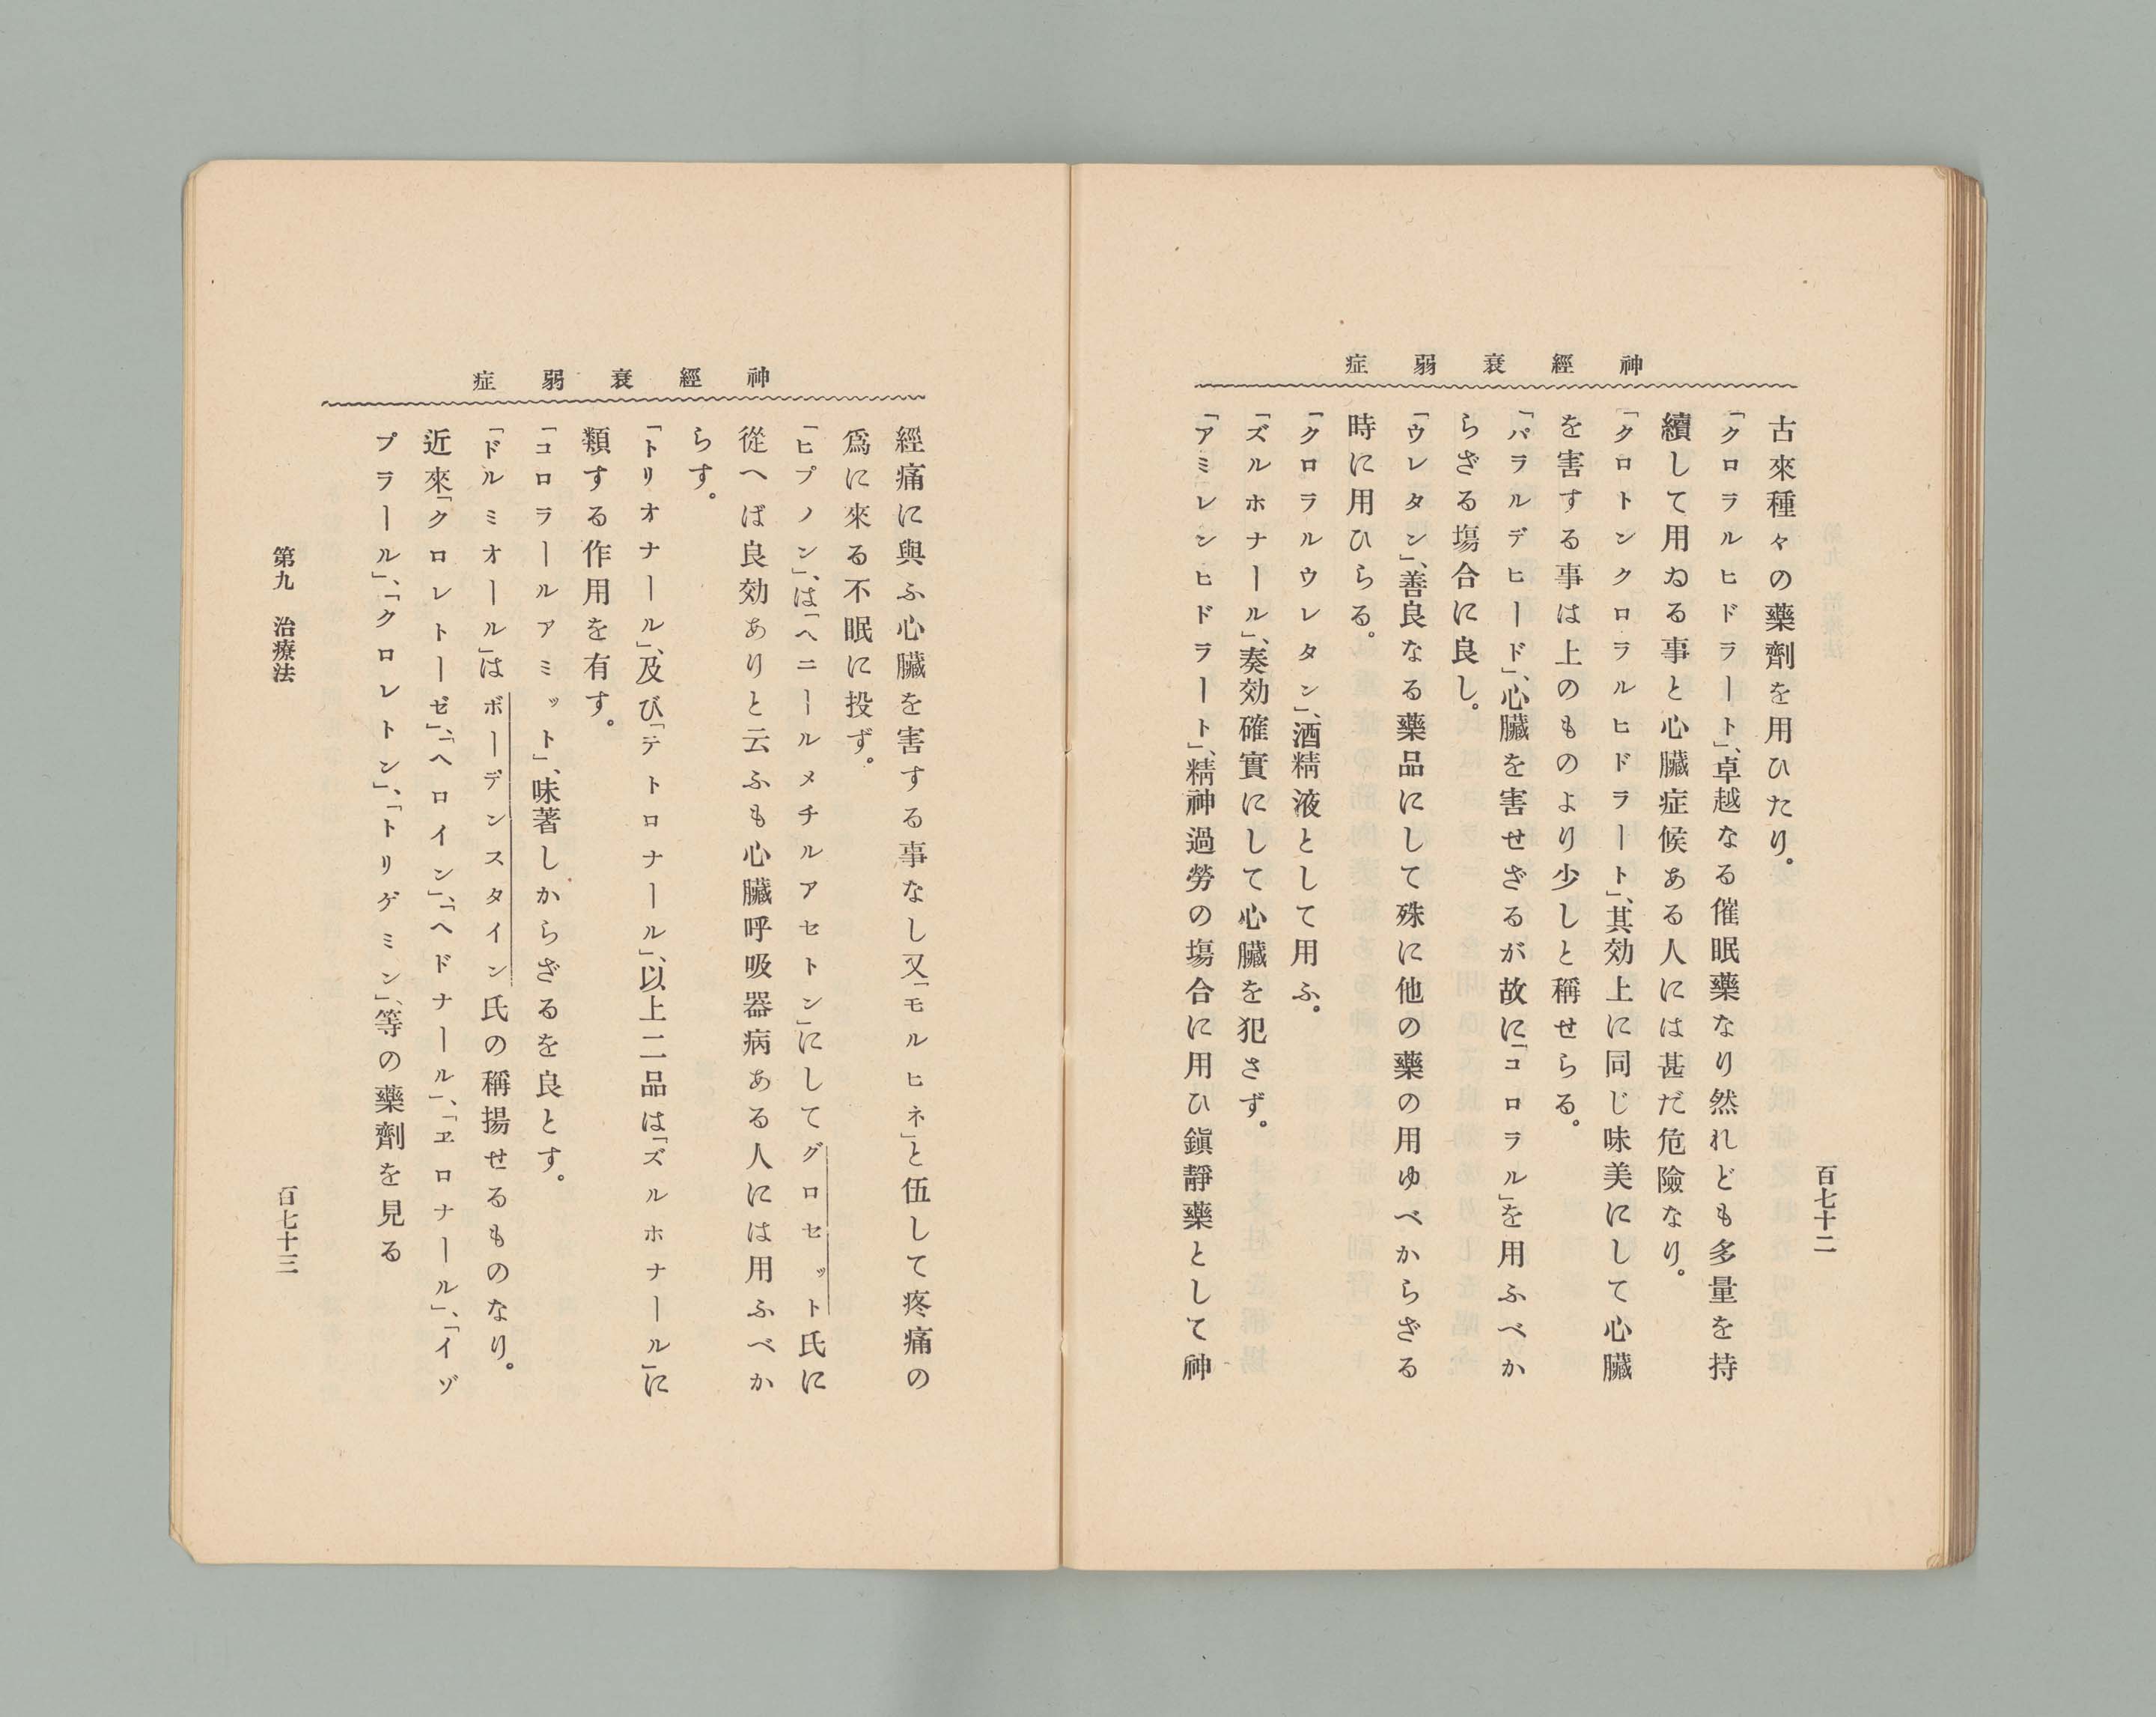 神經衰弱症
古來種々の藥劑を用ひたり。
「クロラルヒドラート」、卓越なる催眠藥なり然れども多量を持
續して用ゐる事と心臟症候ある人には甚だ危險なり。
「クロトンクロラルヒドラート」、其効上に同じ味美にして心臟
を害する事は上のものより少しと稱せらる。
「パラルデヒード」、心臟を害せざるが故に「コロラル」を用ふべか
らざる塲合に良し。
「ウレタン」、善良なる藥品にして殊に他の藥の用ゆべからざる
時に用ひらる。
「クロラルウレタン」、酒精液として用ふ。
「ズルホナール」、奏効確實にして心臟を犯さず。
「アミレンヒドラート」、精神過勞の塲合に用ひ鎭靜藥として神
百七十二
神經衰弱症
經痛に與ふ心臟を害する事なし又「モルヒネ」と伍して疼痛の
爲に來る不眠に投ず。
「ヒプノン」、は「ヘニールメチルアセトン」にしてグロセット氏に
從へば良効ありと云ふも心臟呼吸器病ある人には用ふべか
らす。
「トリオナール」、及び「テトロナール」、以上二品は「ズルホナール」に
類する作用を有す。
「コロラールアミット」、味著しからざるを良とす。
「ドルミオール」はボーデンスタイン氏の稱揚せるものなり。
近來「クロレトーゼ」、「ヘロイン」、「ヘドナール」、「ヱロナール」、「イゾ
プラール」、「クロレトン」、「トリゲミン」、等の藥劑を見る
第九　治療法
百七十三